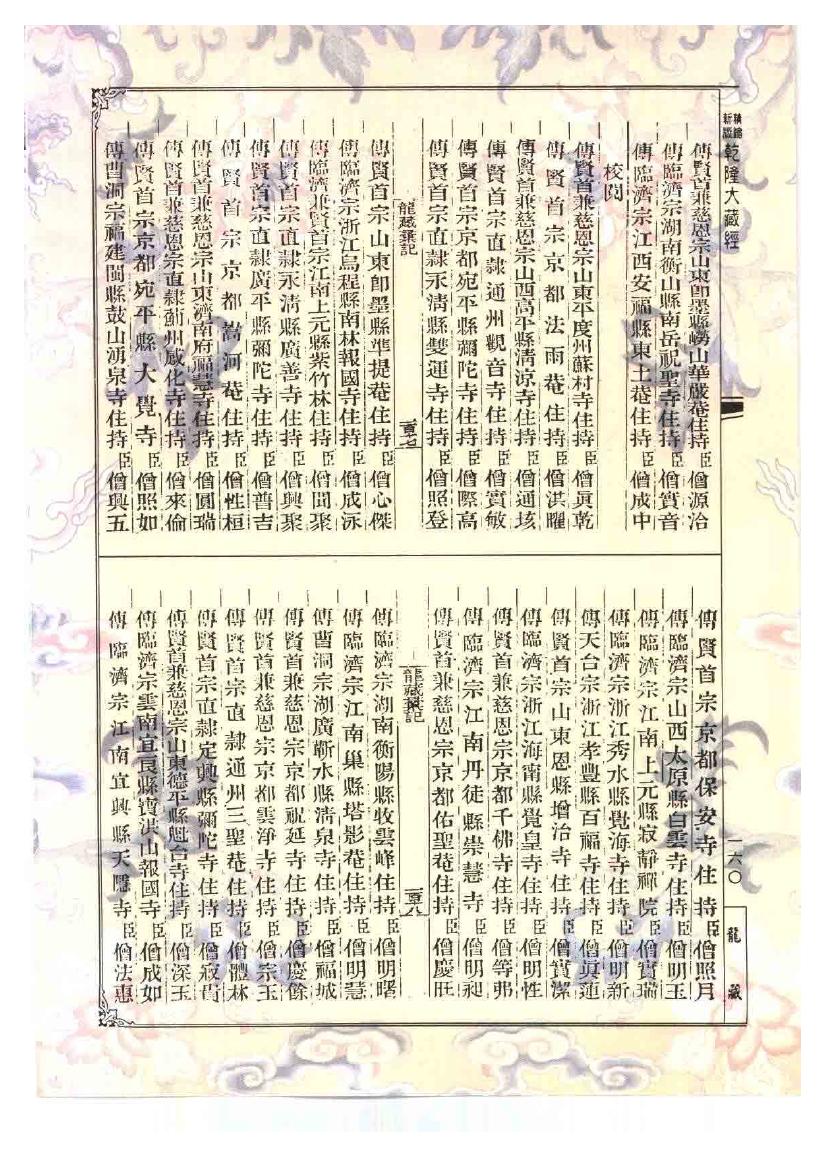 精繪
新譔
乾隆大藏經
傳賢首兼慈恩宗山東卽墨縣嶗山華嚴菴住持臣僧源洽
傳臨濟宗湖南衡山縣南岳祝聖寺住持臣僧實音
傳臨濟宗江西安福縣東土菴住持臣僧成中
校閱
傳賢首兼慈恩宗山東平度州蘇村寺住持臣僧眞乾
傳賢首宗京都法雨菴住持臣僧洪曜
傳賢首兼慈恩宗山西高平縣淸涼寺住持臣僧通垓
傳賢首宗直隷通州觀音寺住持臣僧實敏
傳賢首宗京都宛平縣彌陀寺住持臣僧際高
傳賢首宗直隷永淸縣雙運寺住持臣僧照登
龍藏彚記
傳賢首宗山東卽墨縣準提菴住持臣僧心傑
傳臨濟宗浙江烏程縣南林報國寺住持臣僧成泳
傳臨濟兼賢首宗江南上元縣紫竹林住持臣僧聞聚
傳賢首宗直隷永淸縣廣善寺住持臣僧興聚
傳賢首宗直隷廣平縣彌陀寺住持臣僧普吉
傳賢首宗京都蒿河菴住持臣僧性桓
傳賢首兼慈恩宗山東濟南府福慧寺住持臣僧圓瑞
傳賢首兼慈恩宗直隷薊州感化寺住持臣僧來倫
傳賢首宗京都宛平縣大覺寺臣僧照如
傳曹洞宗福建閩縣鼓山湧泉寺住持臣僧興五
一六〇
龍藏
傳賢首宗京都保安寺住持臣僧照月
傳臨濟宗山西太原縣白雲寺住持臣僧明玉
傳臨濟宗江南上元縣寂靜禪院臣僧實瑞
傳臨濟宗浙江秀水縣覺海寺住持臣僧明新
傳天台宗浙江孝豐縣百福寺住持臣僧眞蓮
傳賢首宗山東恩縣增治寺住持臣僧實潔
傳臨濟宗浙江海甯縣覺皇寺住持臣僧明性
傳賢首兼慈恩宗京都千佛寺住持臣僧等弗
傳臨濟宗江南丹徒縣崇慧寺臣僧明昶
傳賢首兼慈恩宗京都佑聖菴住持臣僧慶旺
龍藏彚記
傳臨濟宗湖南衡陽縣收雲峰住持臣僧明曙
傳臨濟宗江南巢縣塔影菴住持臣僧明慧
傳曹洞宗湖廣蘄水縣淸泉寺住持臣僧福城
傳賢首兼慈恩宗京都祝延寺住持臣僧慶餘
傳賢首兼慈恩宗京都雲淨寺住持臣僧宗玉
傳賢首宗直隷通州三聖菴住持臣僧體林
傳賢首宗直隷定興縣彌陀寺住持臣僧寂貴
傳賢首兼慈恩宗山東德平縣魁台寺住持臣僧深玉
傳臨濟宗雲南宜良縣寶洪山報國寺臣僧成如
傳臨濟宗江南宜興縣天隱寺臣僧法惠